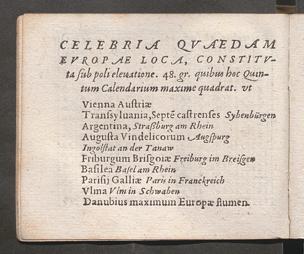 CELEBRIA QVAEDAM
EVROPAE LOCA, CONSTITV-
ta sub poli eleuatione. 48. gr. quibus hoc Quin-
tum Calendarium maxime quadrat. vt
Vienna Austriæ
Transyluania, Septē castrenses Sybenbürgen
Argentina, Straßburg am Rhein
Augusta Vindelicorum Augspurg
Ingolstat an der Tanaw
Friburgum Brisgoiæ Freiburg im Breisgew
Basilea Basel am Rhein
Parisij Galliæ Paris in Franckreich
Vlma Vlm in Schwaben
Danubius maximum Europæ flumen.